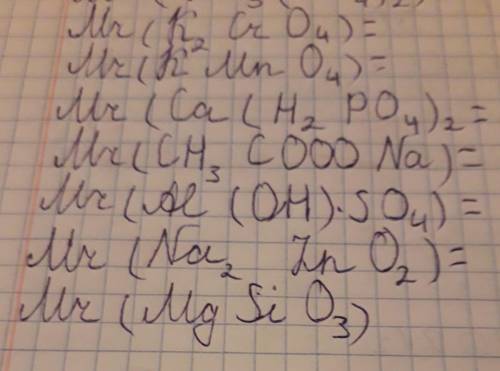 Mr (K2 Cr O4)=
Mr (K2 Mn O4)=
Mr (Ca (H2 PO4)2 =
Mr (CH3 COOO Na)=
Mr (Al (OH)·SO4)=
Mr (Na2 Zn O2)=
Mr (Mg Si O3)